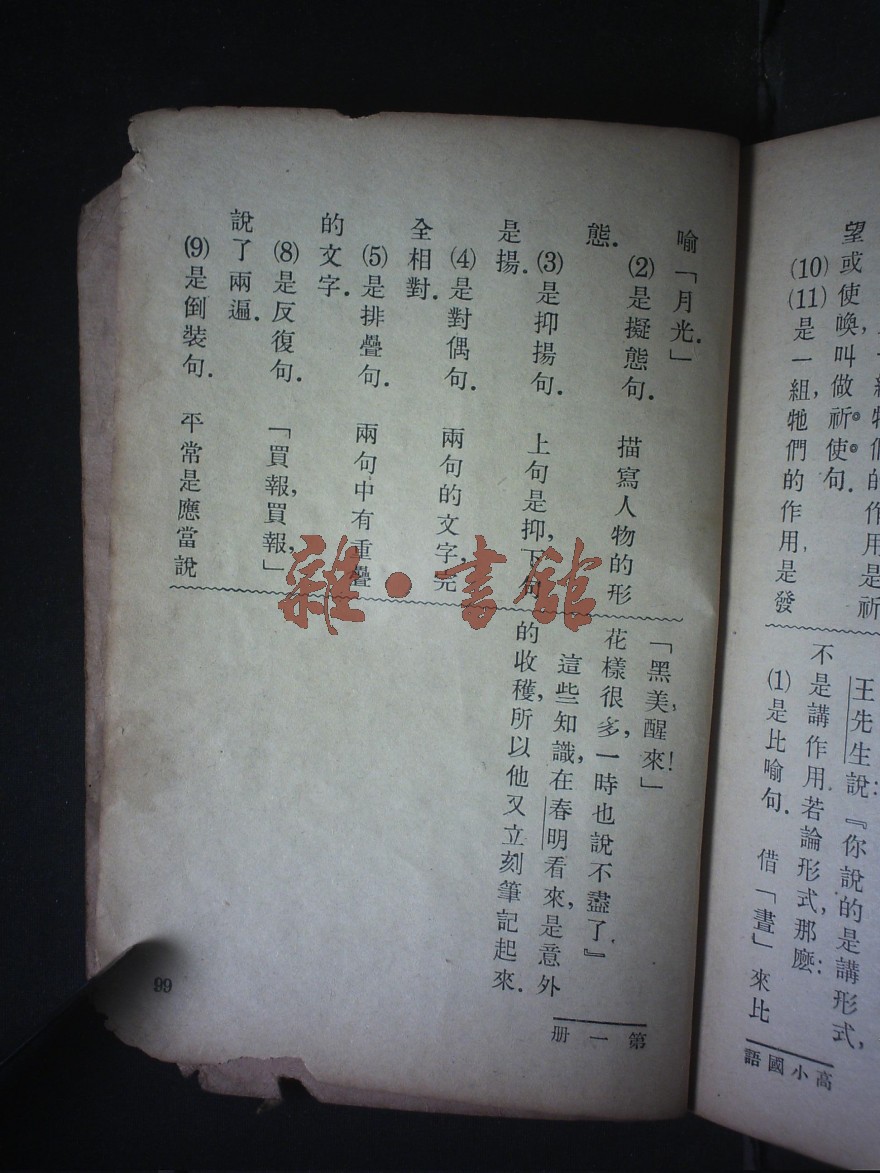 望或使喚，叫做祈使句．
(10)(11)是一組，牠們的作用，是發
王先生說：『你說的是講形式，
不是講作用．若論形式，那麼：
(1)是比喻句． 借「晝」來比
高小國語
喻「月光．」
(2)是擬態句． 描寫人物的形
態．
(3)是抑揚句． 上句是抑，下句
是揚．
(4)是對偶句． 兩句的文字，完
全相對．
(5)是排疊句． 兩句中有重疊
的文字．
(8)是反復句． 「買報，買報，」
說了兩遍．
(9)是倒裝句． 平常是應當說
「黑美，醒來！」
花樣很多，一時也說不盡了．』
這些知識，在春明看來，是意外
的收穫，所以他又立刻筆記起來．
第一册
99
雜·書館